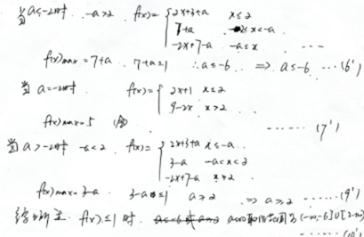 当a<-2时 -a>2 f(x)={ 2x+3+a x≤2
7+a 2<x<-a
-2x+7-a -a≤x
f(x)max=7+a 7+a≤1 ∴a≤-6 ⇒ a≤-6 …(6')
当 a=-2时 f(x)={ 2x+1 x≤2
9-2x x>2
f(x)max=5 …(7')
当a>-2时 -a<2 f(x)={ 2x+3+a x≤-a
3-a -a<x<2
-2x+7-a x≥2
f(x)max=3-a 3-a≤1 a≥2 ⇒ a≥2 …(9')
综上所述 f(x)≤1 时 a的取值范围为(-∞,-6]∪[2,+∞)
…(10')